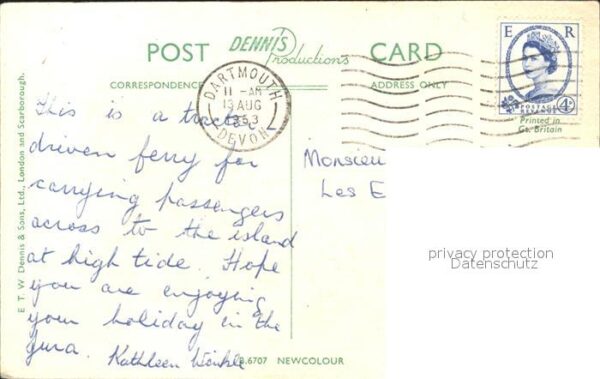 POST DENNIS Productions CARD
CORRESPONDENCE
ADDRESS ONLY
E R
POSTAGE
REVENUE
4D
Printed in
Gt. Britain
DARTMOUTH
11-AM
13 AUG
DEVON
This is a tractor
driven ferry for
carrying passengers
across to the island
at high tide. Hope
you are enjoying
your holiday in the
Jura. Kathleen Winkle
Monsieu
Les E
privacy protection
Datenschutz
E T. W Dennis & Sons, Ltd., London and Scarborough.
B.6707 NEWCOLOUR